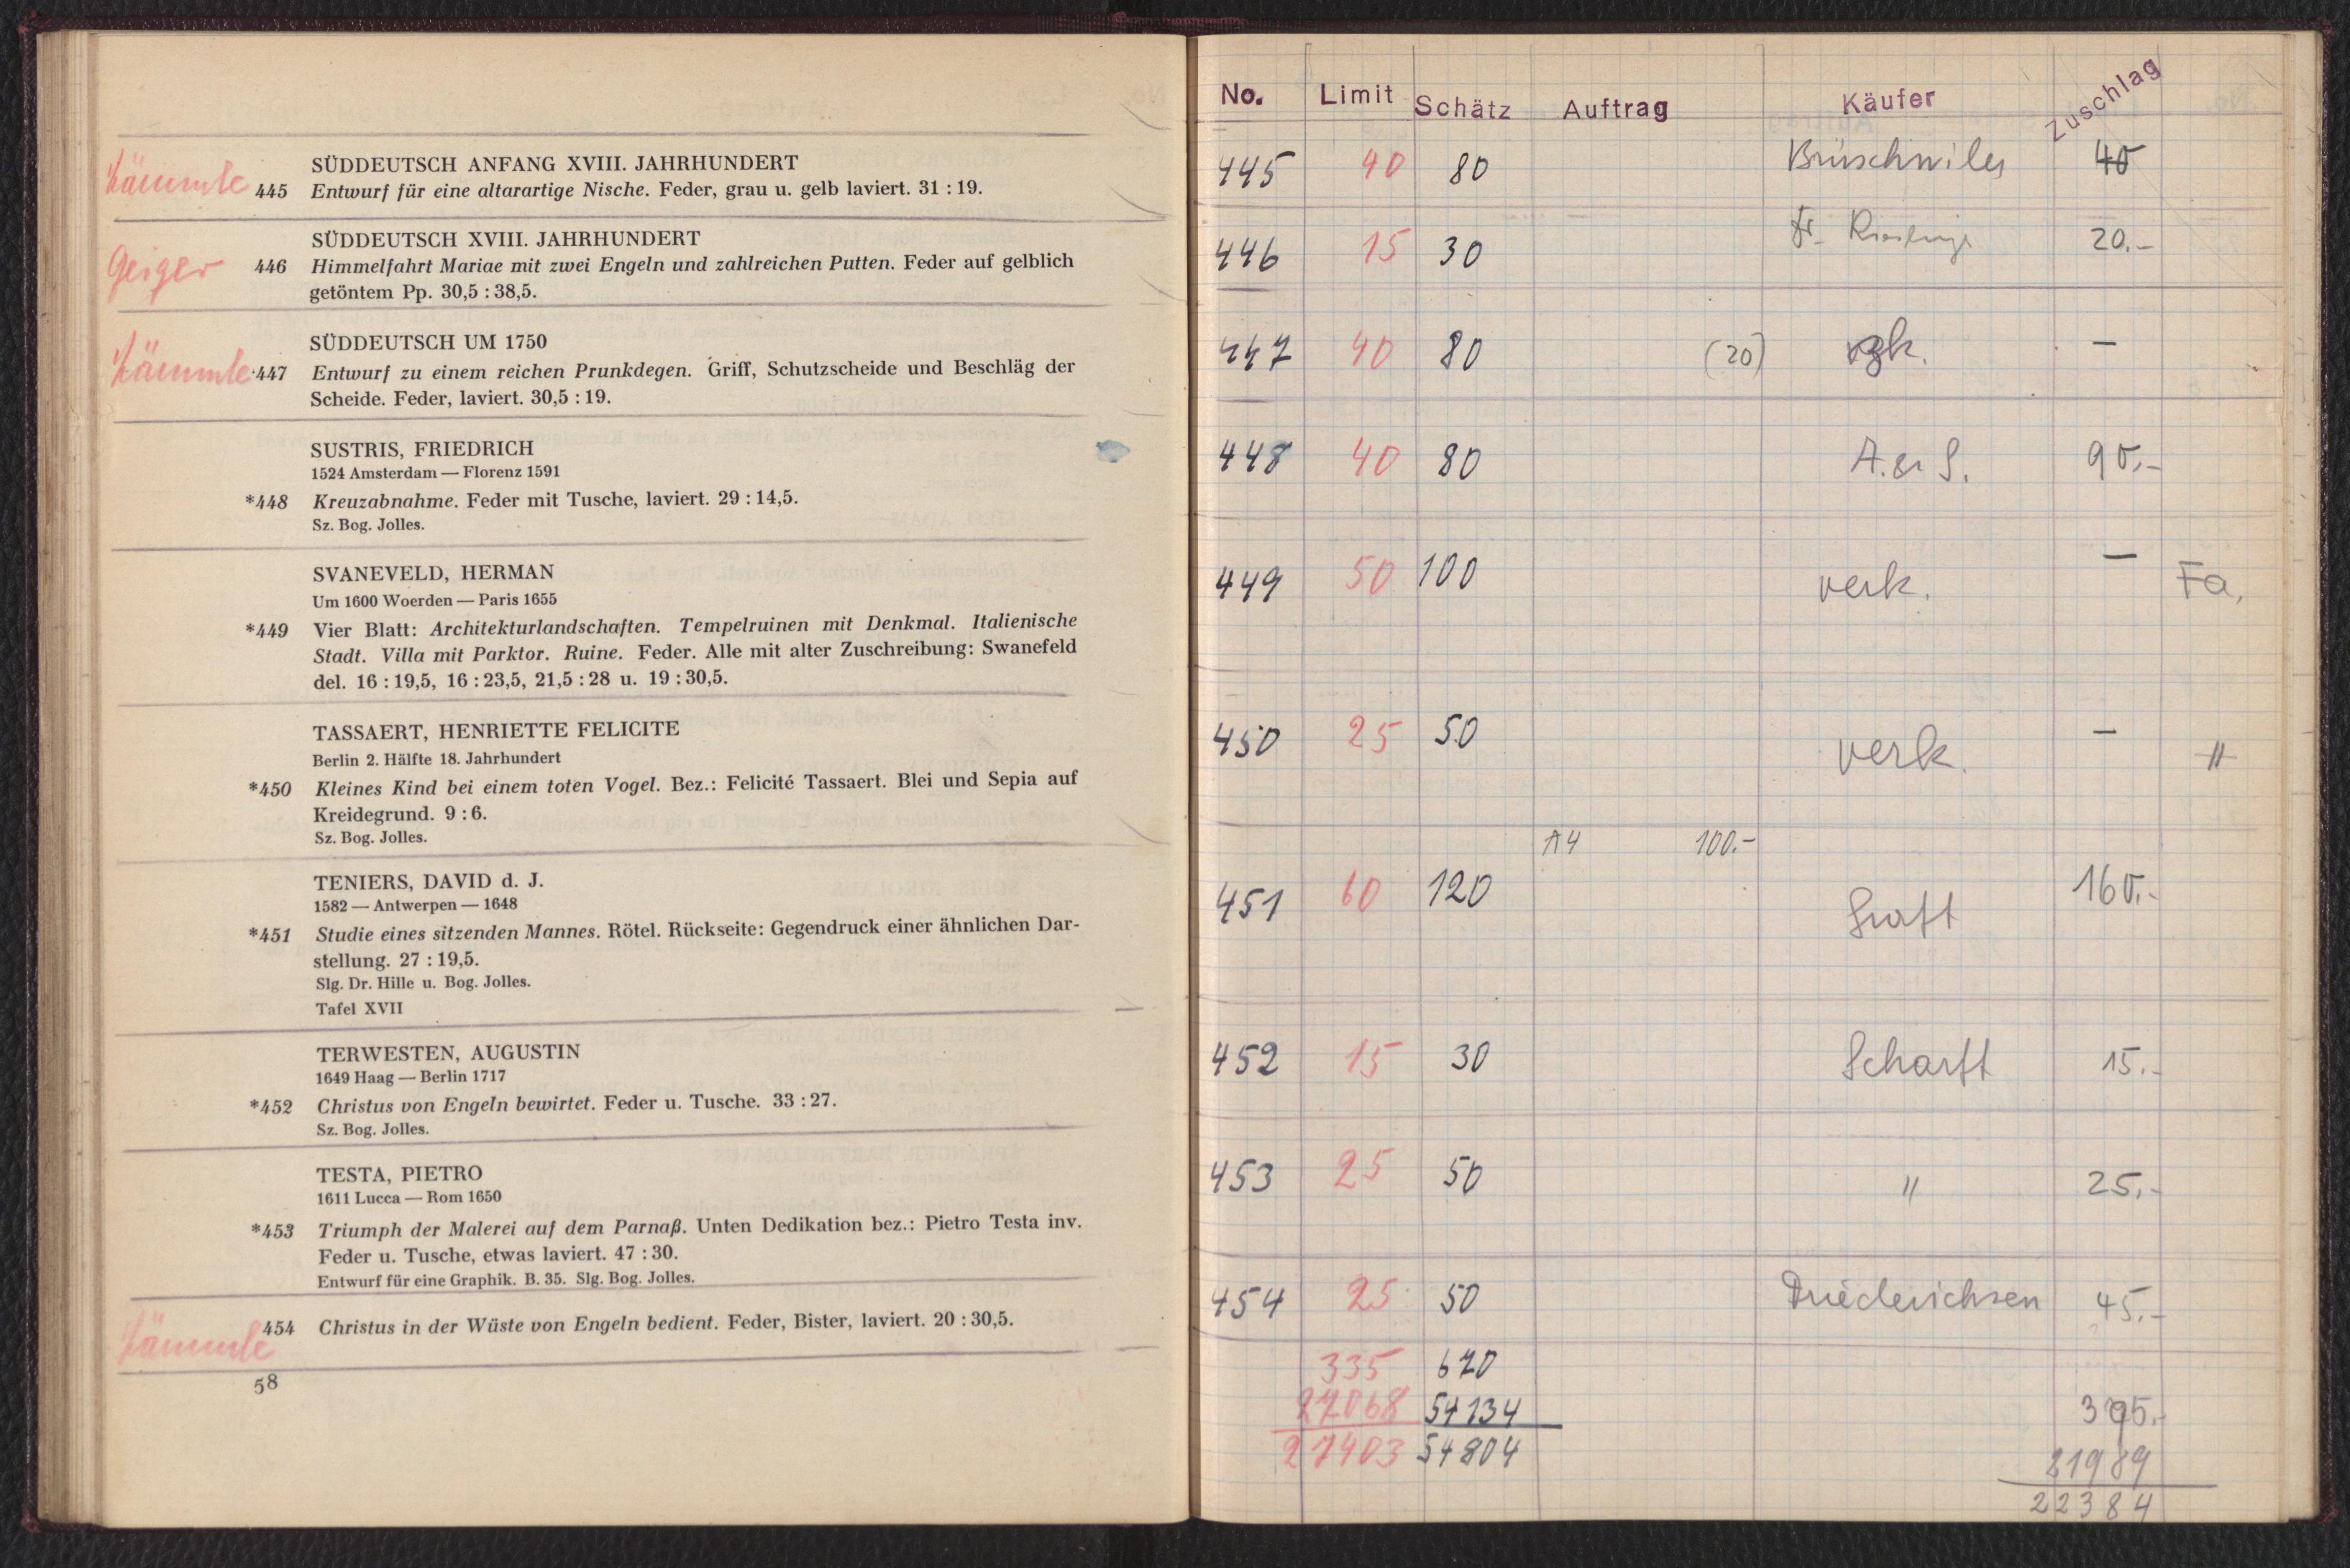 SÜDDEUTSCH ANFANG XVIII. JAHRHUNDERT
Lämmle 445 Entwurf für eine altarartige Nische. Feder, grau u. gelb laviert. 31 : 19.
SÜDDEUTSCH XVIII. JAHRHUNDERT
Geiger 446 Himmelfahrt Mariae mit zwei Engeln und zahlreichen Putten. Feder auf gelblich
getöntem Pp. 30,5 : 38,5.
SÜDDEUTSCH UM 1750
Lämmle 447 Entwurf zu einem reichen Prunkdegen. Griff, Schutzscheide und Beschläg der
Scheide. Feder, laviert. 30,5 : 19.
SUSTRIS, FRIEDRICH
1524 Amsterdam — Florenz 1591
*448 Kreuzabnahme. Feder mit Tusche, laviert. 29 : 14,5.
Sz. Bog. Jolles.
SVANEVELD, HERMAN
Um 1600 Woerden — Paris 1655
*449 Vier Blatt: Architekturlandschaften. Tempelruinen mit Denkmal. Italienische
Stadt. Villa mit Parktor. Ruine. Feder. Alle mit alter Zuschreibung: Swanefeld
del. 16 : 19,5, 16 : 23,5, 21,5 : 28 u. 19 : 30,5.
TASSAERT, HENRIETTE FELICITE
Berlin 2. Hälfte 18. Jahrhundert
*450 Kleines Kind bei einem toten Vogel. Bez.: Felicité Tassaert. Blei und Sepia auf
Kreidegrund. 9 : 6.
Sz. Bog. Jolles.
TENIERS, DAVID d. J.
1582 — Antwerpen — 1648
*451 Studie eines sitzenden Mannes. Rötel. Rückseite: Gegendruck einer ähnlichen Dar-
stellung. 27 : 19,5.
Slg. Dr. Hille u. Bog. Jolles.
Tafel XVII
TERWESTEN, AUGUSTIN
1649 Haag — Berlin 1717
*452 Christus von Engeln bewirtet. Feder u. Tusche. 33 : 27.
Sz. Bog. Jolles.
TESTA, PIETRO
1611 Lucca — Rom 1650
*453 Triumph der Malerei auf dem Parnaß. Unten Dedikation bez.: Pietro Testa inv.
Feder u. Tusche, etwas laviert. 47 : 30.
Entwurf für eine Graphik. B. 35. Slg. Bog. Jolles.
Lämmle 454 Christus in der Wüste von Engeln bedient. Feder, Bister, laviert. 20 : 30,5.
58
No. Limit Schätz Auftrag Käufer Zuschlag
445 40 80 Brüschwiler 40
446 15 30 20.-
447 40 80 (20) rgk. —
448 40 80 90.-
449 50 100 verk. — Fa.
450 25 50 verk. — "
A4 100.-
451 60 120 Graft 160.-
452 15 30 Scharff 15.-
453 25 50 " 25.-
454 25 50 Driederichsen 45.-
335 670
27068 54134 395.-
27403 54804 21989
22384